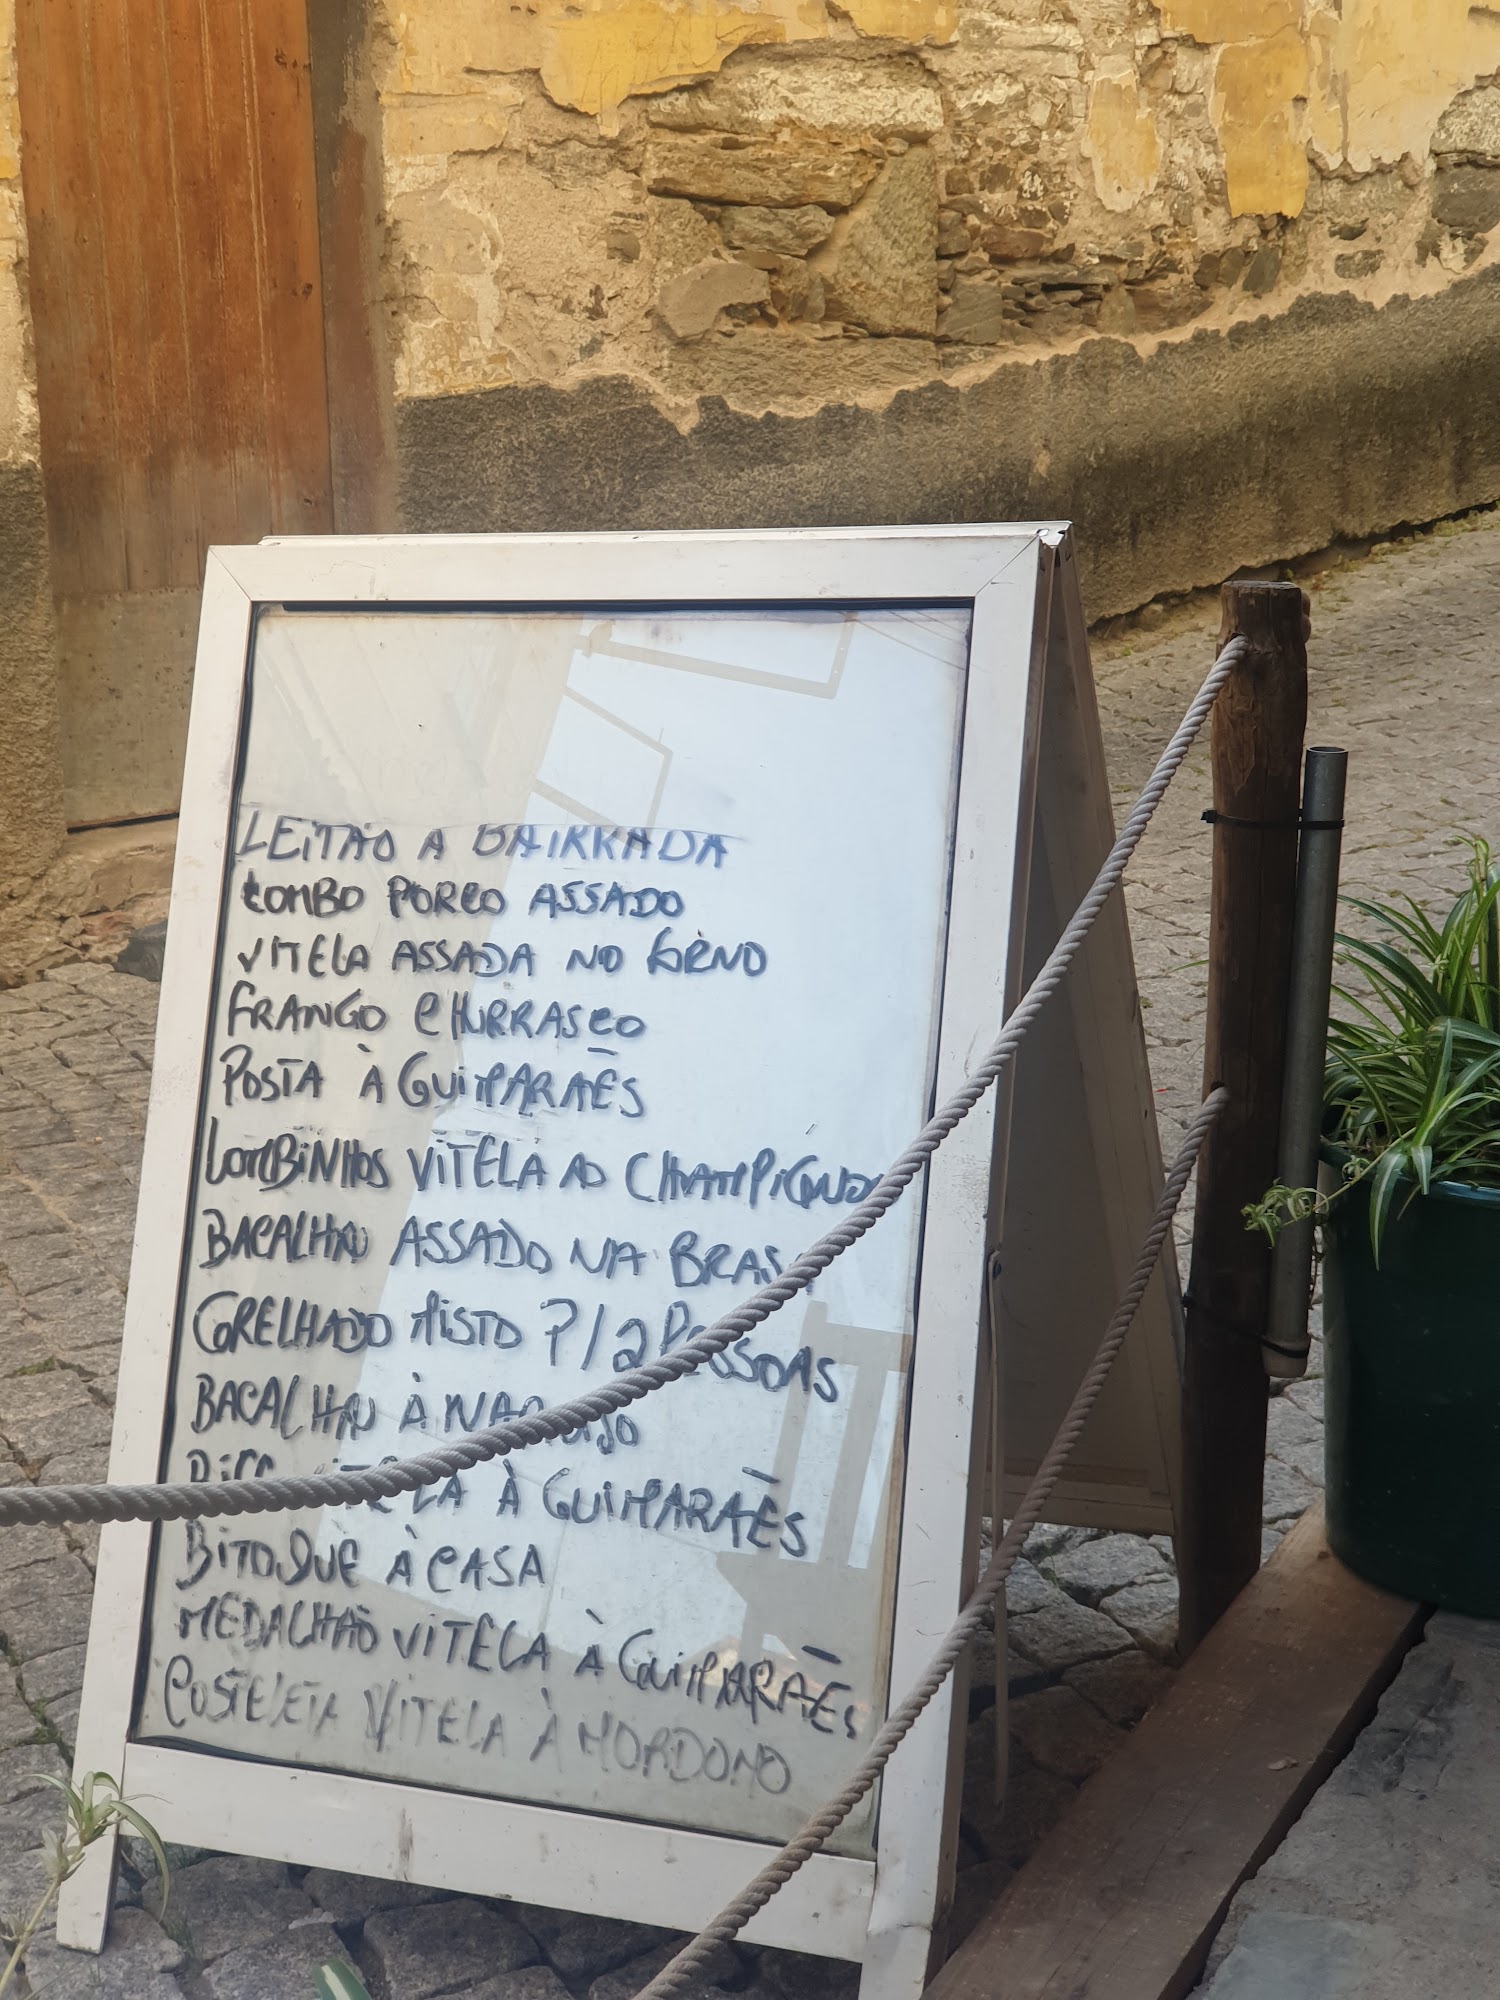 LEITÃO A BAIRRADA
LOMBO PORCO ASSADO
VITELA ASSADA NO FORNO
FRANGO CHURRASCO
POSTA À GUIMARÃES
LOMBINHOS VITELA AO CHAMPIGNON
BACALHAU ASSADO NA BRASA
GRELHADO MISTO P/2 PESSOAS
BACALHAU À
À GUIMARÃES
BITOQUE À CASA
MEDALHÃO VITELA À GUIMARÃES
COSTELETA VITELA À MORDOMO